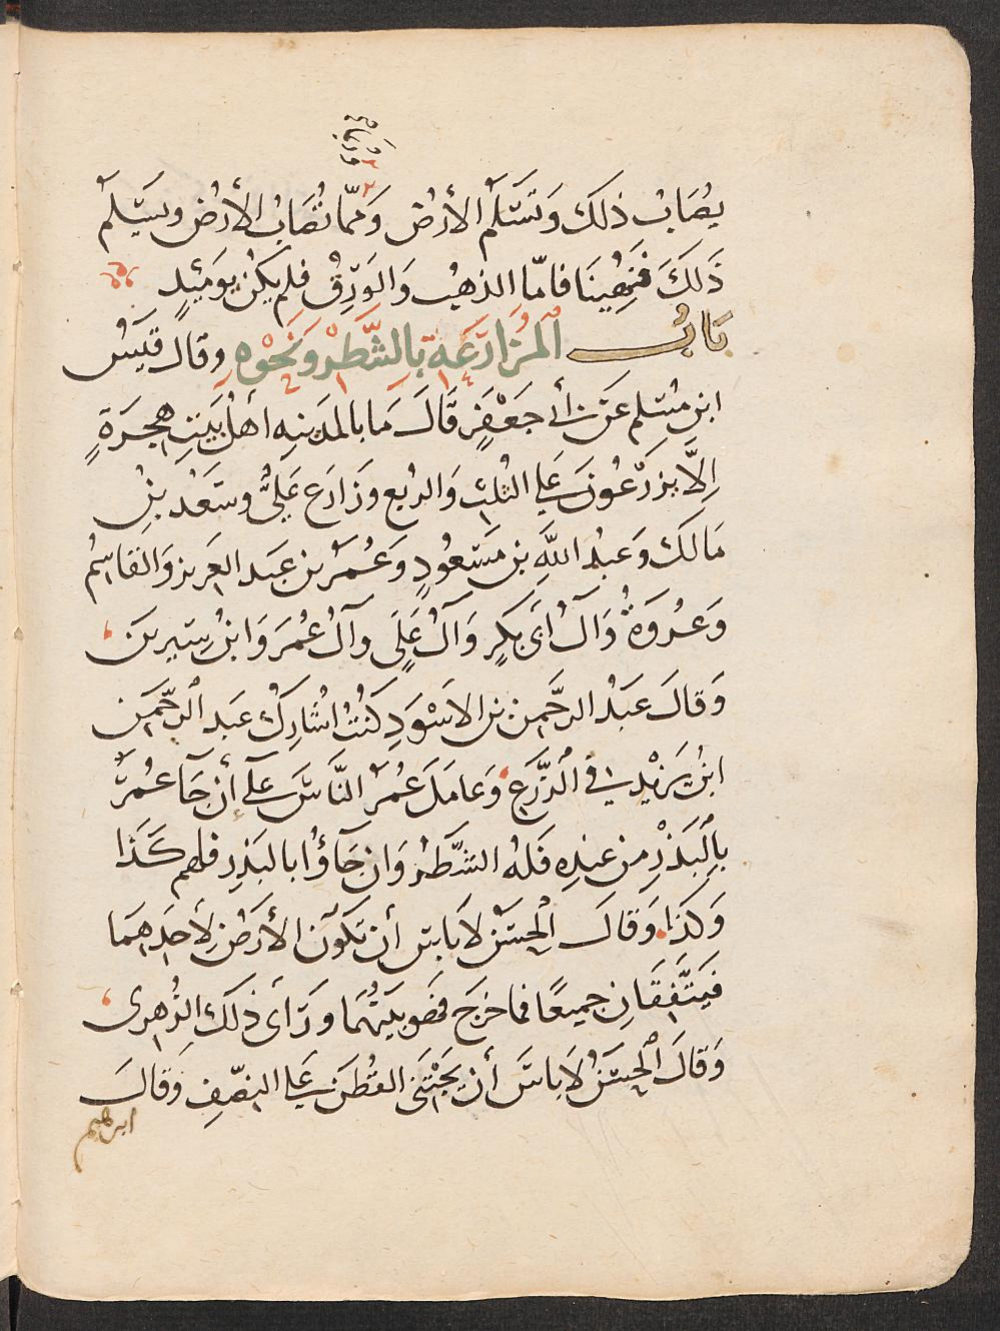 يُصَابُ ذٰلِكَ وَتَسْلَمُ الأرْضُ وَمِمّا تُصَابُ الأَرْضُ ويَسْلَمُ
ذَلِكَ فَنُهِينَا فامّا الذهبُ وَالوَرِقُ فلم يَكُنْ يومَئِدٍ
بَابُ المُزَارَعَةِ بِالشَّطْرِ وَنَحْوِهِ وقالَ قَيْسُ
ابن مُسْلِمٍ عَنْ أبى جَعْفَرٍ قَالَ مَا بالمَدِينه أهلُ بَيْتِ هِجرَةٍ
إلَّا يزرَعُونَ عَلى الثلثِ وَالربع وزَارَعَ عَلِىٌّ وسَعْد بنُ
مَالك وَعَبْدُ اللّٰهِ بن مَسْعُودٍ وَعُمَرُ بن عَبد العَزيز وَالقاسِمُ
وَعُرْوَةُ وَآلُ أبى بَكرٍ وَآلُ عَلِى وآلُ عُمَرَ وَابنُ سِيرينَ
وَقالَ عَبْدُ الرَّحمن بن الاسْوَدِ كُنتُ اشَارِكُ عَبد الرَّحمَن
ابنَ يَزيْدِ فى الزَّرْعِ وَعامَلَ عُمَرُ النَّاسَ عَلَى أن جَآ عُمَرُ
بِالْبَذْرِ من عنِدِه فَلهُ الشَّطْرُ وَان جَآؤُا بالبَذرِ فلهم كَذَا
وَكذَا وَقالَ الحسَنُ لاَ باس أن تكونَ الأرضُ لِأحَدِهمَا
فيُنْفِقَانِ جميعًا فما خرَجَ فهو بَيْنهُمَا ورَأى ذلكَ الزُهرى
وَقالَ الحسَنُ لَا باسَ أن يُجْتَنَى القُطنُ عَلى النِصْفِ وَقالَ
ابرهيم